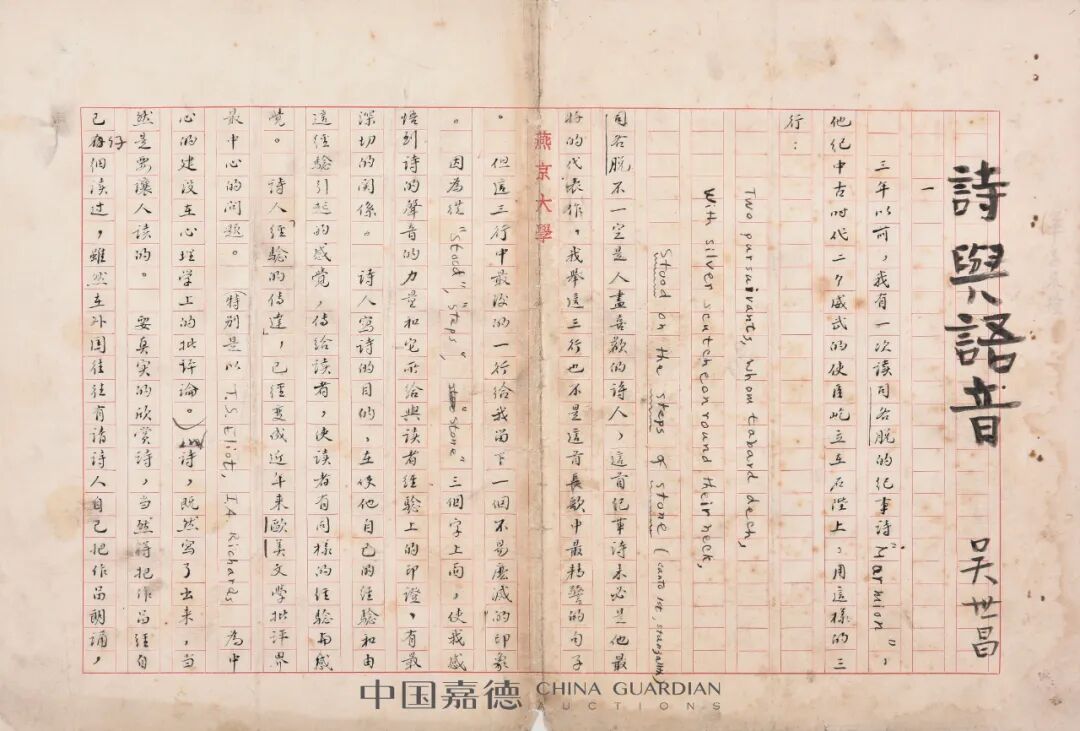 詩與語音
吳世昌
一
三年以前,我有一次读司各脱的纪事詩"Marmion",
他纪中古时代二个威武的使臣屹立在石陛上,用這樣的三
行:
Two pursuivants, whom tabard deck,
With silver scutcheon round their neck,
Stood on the steps of stone (canto 1st, stanza
司各脱不一定是人盡喜歡的诗人,這首纪事诗未必是他最
好的代表作,我举這三行也不是這首長歌中最精警的句子
。但這三行中最後的一行给我留下一個不易磨滅的印象
。因為從"Stood","steps","stone"三個字上面,使我感
悟到诗的聲音的力量和它所给與读者經驗上的印證,有最
深切的関係。诗人寫诗的目的,在使他自己的經驗和由
這經驗引起的感觉,傳给读者,使读者有同樣的經驗与感
覺。诗人「經驗的傳達」,已經变成近年来歐美文学批评界
最中心的问题。(特别是以T.S.Eliot, I.A. Richards 為中
心的建设在心理学上的批评論。)诗,既然寫了出来,当
然是要讓人读的。要真实的欣赏诗,当然得把作品經自
己仔细读过,雖然在外国往往有請诗人自己把作品朗誦,
燕京大學
中国嘉德 CHINA GUARDIAN
AUCTIONS